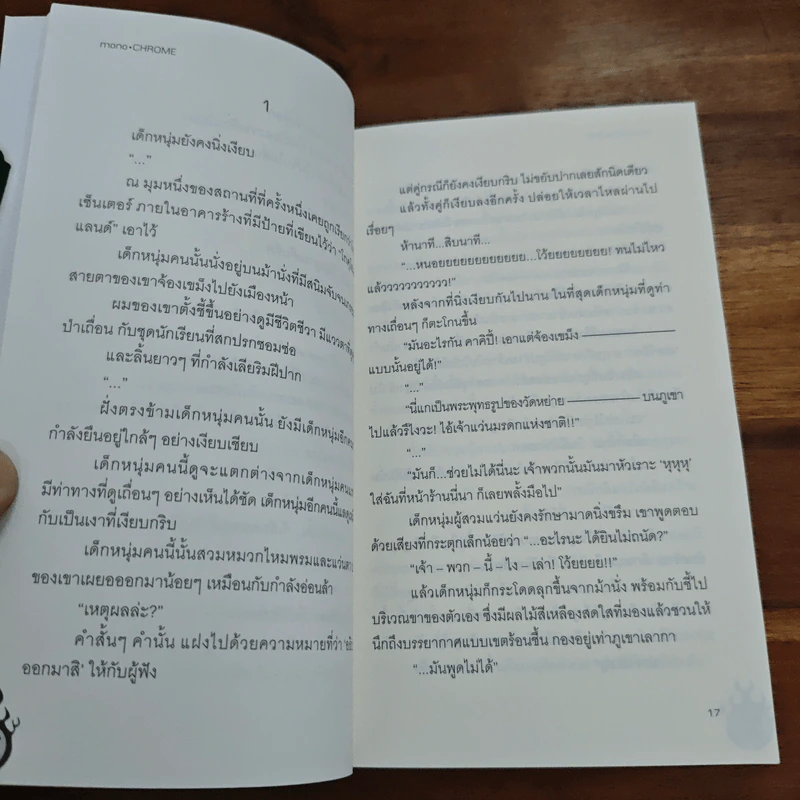 mono•CHROME
1
เด็กหนุ่มยังคงนิ่งเงียบ
“...”
ณ มุมหนึ่งของสถานที่ที่ครั้งหนึ่งเคยถูกเรียก
เซ็นเตอร์ ภายในอาคารร้างที่มีป้ายที่เขียนไว้ว่า
แลนด์” เอาไว้
เด็กหนุ่มคนนั้นนั่งอยู่บนม้านั่งที่มีสนิมจับจน
สายตาของเขาจ้องเขม็งไปยังเมืองหน้า
ผมของเขาตั้งชี้ขึ้นอย่างดูมีชีวิตชีวา มีแววตา
ป่าเถื่อน กับชุดนักเรียนที่สกปรกซอมซ่อ
และลิ้นยาวๆ ที่กำลังเลียริมฝีปาก
“...”
ฝั่งตรงข้ามเด็กหนุ่มคนนั้น ยังมีเด็กหนุ่มอีก
กำลังยืนอยู่ใกล้ๆ อย่างเงียบเชียบ
เด็กหนุ่มคนนี้ดูจะแตกต่างจากเด็กหนุ่มคน
มีท่าทางที่ดูเถื่อนๆ อย่างเห็นได้ชัด เด็กหนุ่มอีกคนนี้
กับเป็นเงาที่เงียบกริบ
เด็กหนุ่มคนนี้นั้นสวมหมวกไหมพรมและแว่น
ของเขาเผยอออกมาน้อยๆ เหมือนกับกำลังอ่อนล้า
“เหตุผลล่ะ?”
คำสั้นๆ คำนั้น แฝงไปด้วยความหมายที่ว่า
ออกมาสิ’ ให้กับผู้ฟัง
แต่คู่กรณีก็ยังคงเงียบกริบ ไม่ขยับปากเลยสักนิดเดียว
แล้วทั้งคู่ก็เงียบลงอีกครั้ง ปล่อยให้เวลาไหลผ่านไป
เรื่อยๆ
ห้านาที...สิบนาที...
“...หนอยยยยยยยยยยยยย...โว้ยยยยยยยย! ทนไม่ไหว
แล้วววววววววววว!”
หลังจากที่นิ่งเงียบกันไปนาน ในที่สุดเด็กหนุ่มที่ดูท่า
ทางเถื่อนๆ ก็ตะโกนขึ้น
“มันอะไรกัน คาคิปี้! เอาแต่จ้องเขม็ง ————————
แบบนั้นอยู่ได้!”
“...”
“นี่แกเป็นพระพุทธรูปของวัดหย่าย —————— บนภูเขา
ไปแล้วรึไงวะ! ไอ้เจ้าแว่นมรดกแห่งชาติ!!”
“...”
“มันก็...ช่วยไม่ได้นี่นะ เจ้าพวกนั้นมันมาหัวเราะ ‘หุหุหุ’
ใส่ฉันที่หน้าร้านนี่นา ก็เลยพลั้งมือไป”
เด็กหนุ่มผู้สวมแว่นยังคงรักษามาดนิ่งขรึม เขาพูดตอบ
ด้วยเสียงที่กระตุกเล็กน้อยว่า “...อะไรนะ ได้ยินไม่ถนัด?”
“เจ้า – พวก – นี้ – ไง – เล่า! โว้ยยยย!!”
แล้วเด็กหนุ่มก็กระโดดลุกขึ้นจากม้านั่ง พร้อมกับชี้ไป
บริเวณขาของตัวเอง ซึ่งมีผลไม้สีเหลืองสดใสที่มองแล้วชวนให้
นึกถึงบรรยากาศแบบเขตร้อนชื้น กองอยู่เท่าภูเขาเลากา
“...มันพูดไม่ได้”
17